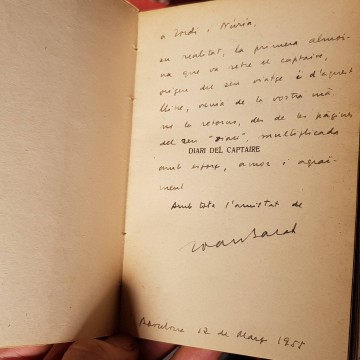 a Jordi i Núria,
en realitat, la primera almoi-
na que va rebre el captaire,
origen del seu viatge i d'aquest
llibre, venia de la vostra mà.
us la retorna, des de les pàgines
del seu "Diari", multiplicada
DIARI DEL CAPTAIRE
amb esforç, amor i agraï-
ment
Amb tota l'amistat de
Joan Barat
Barcelona 12 de Març 1955